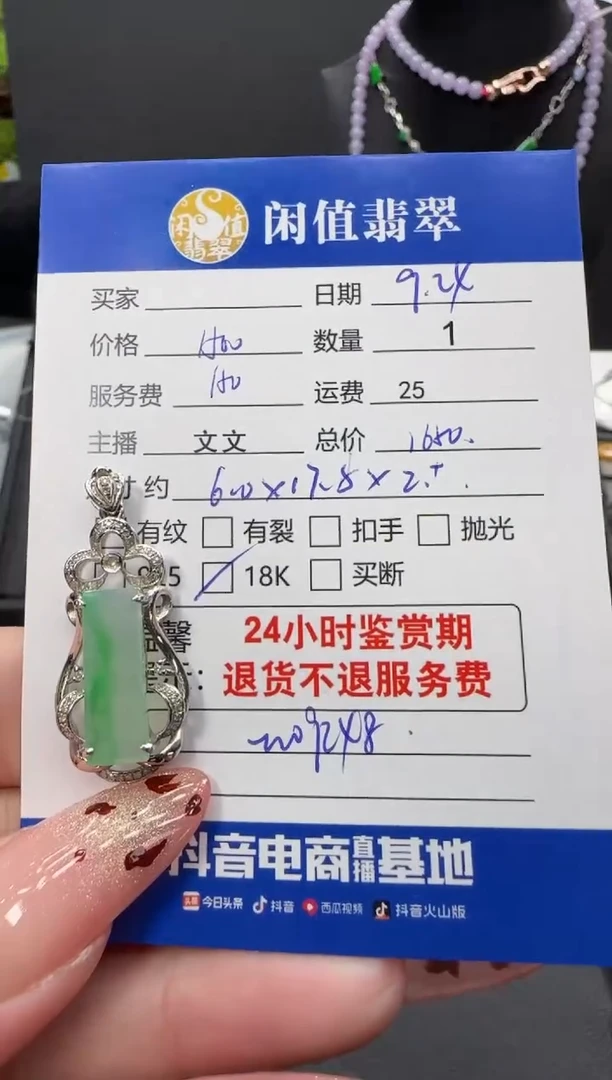 闲值翡翠
闲值翡翠
买家 日期 9.24
价格 数量 1
服务费 运费 25
主播 文文 总价 1650.
寸约
有纹 有裂 扣手 抛光
925 18K 买断
温馨 24小时鉴赏期
退货不退服务费
抖音电商直播基地
头条 今日头条 抖音 西瓜视频 抖音火山版